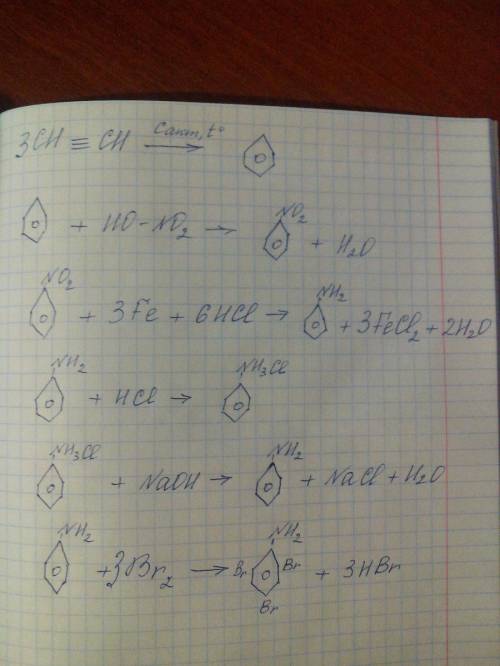 3CH ≡ CH —Cакт, t°→
+ HO-NO₂ → NO₂ + H₂O
NO₂ + 3Fe + 6HCl → NH₂ + 3FeCl₂ + 2H₂O
NH₂ + HCl → NH₃Cl
NH₃Cl + NaOH → NH₂ + NaCl + H₂O
NH₂ + 3Br₂ → NH₂ Br Br Br + 3HBr